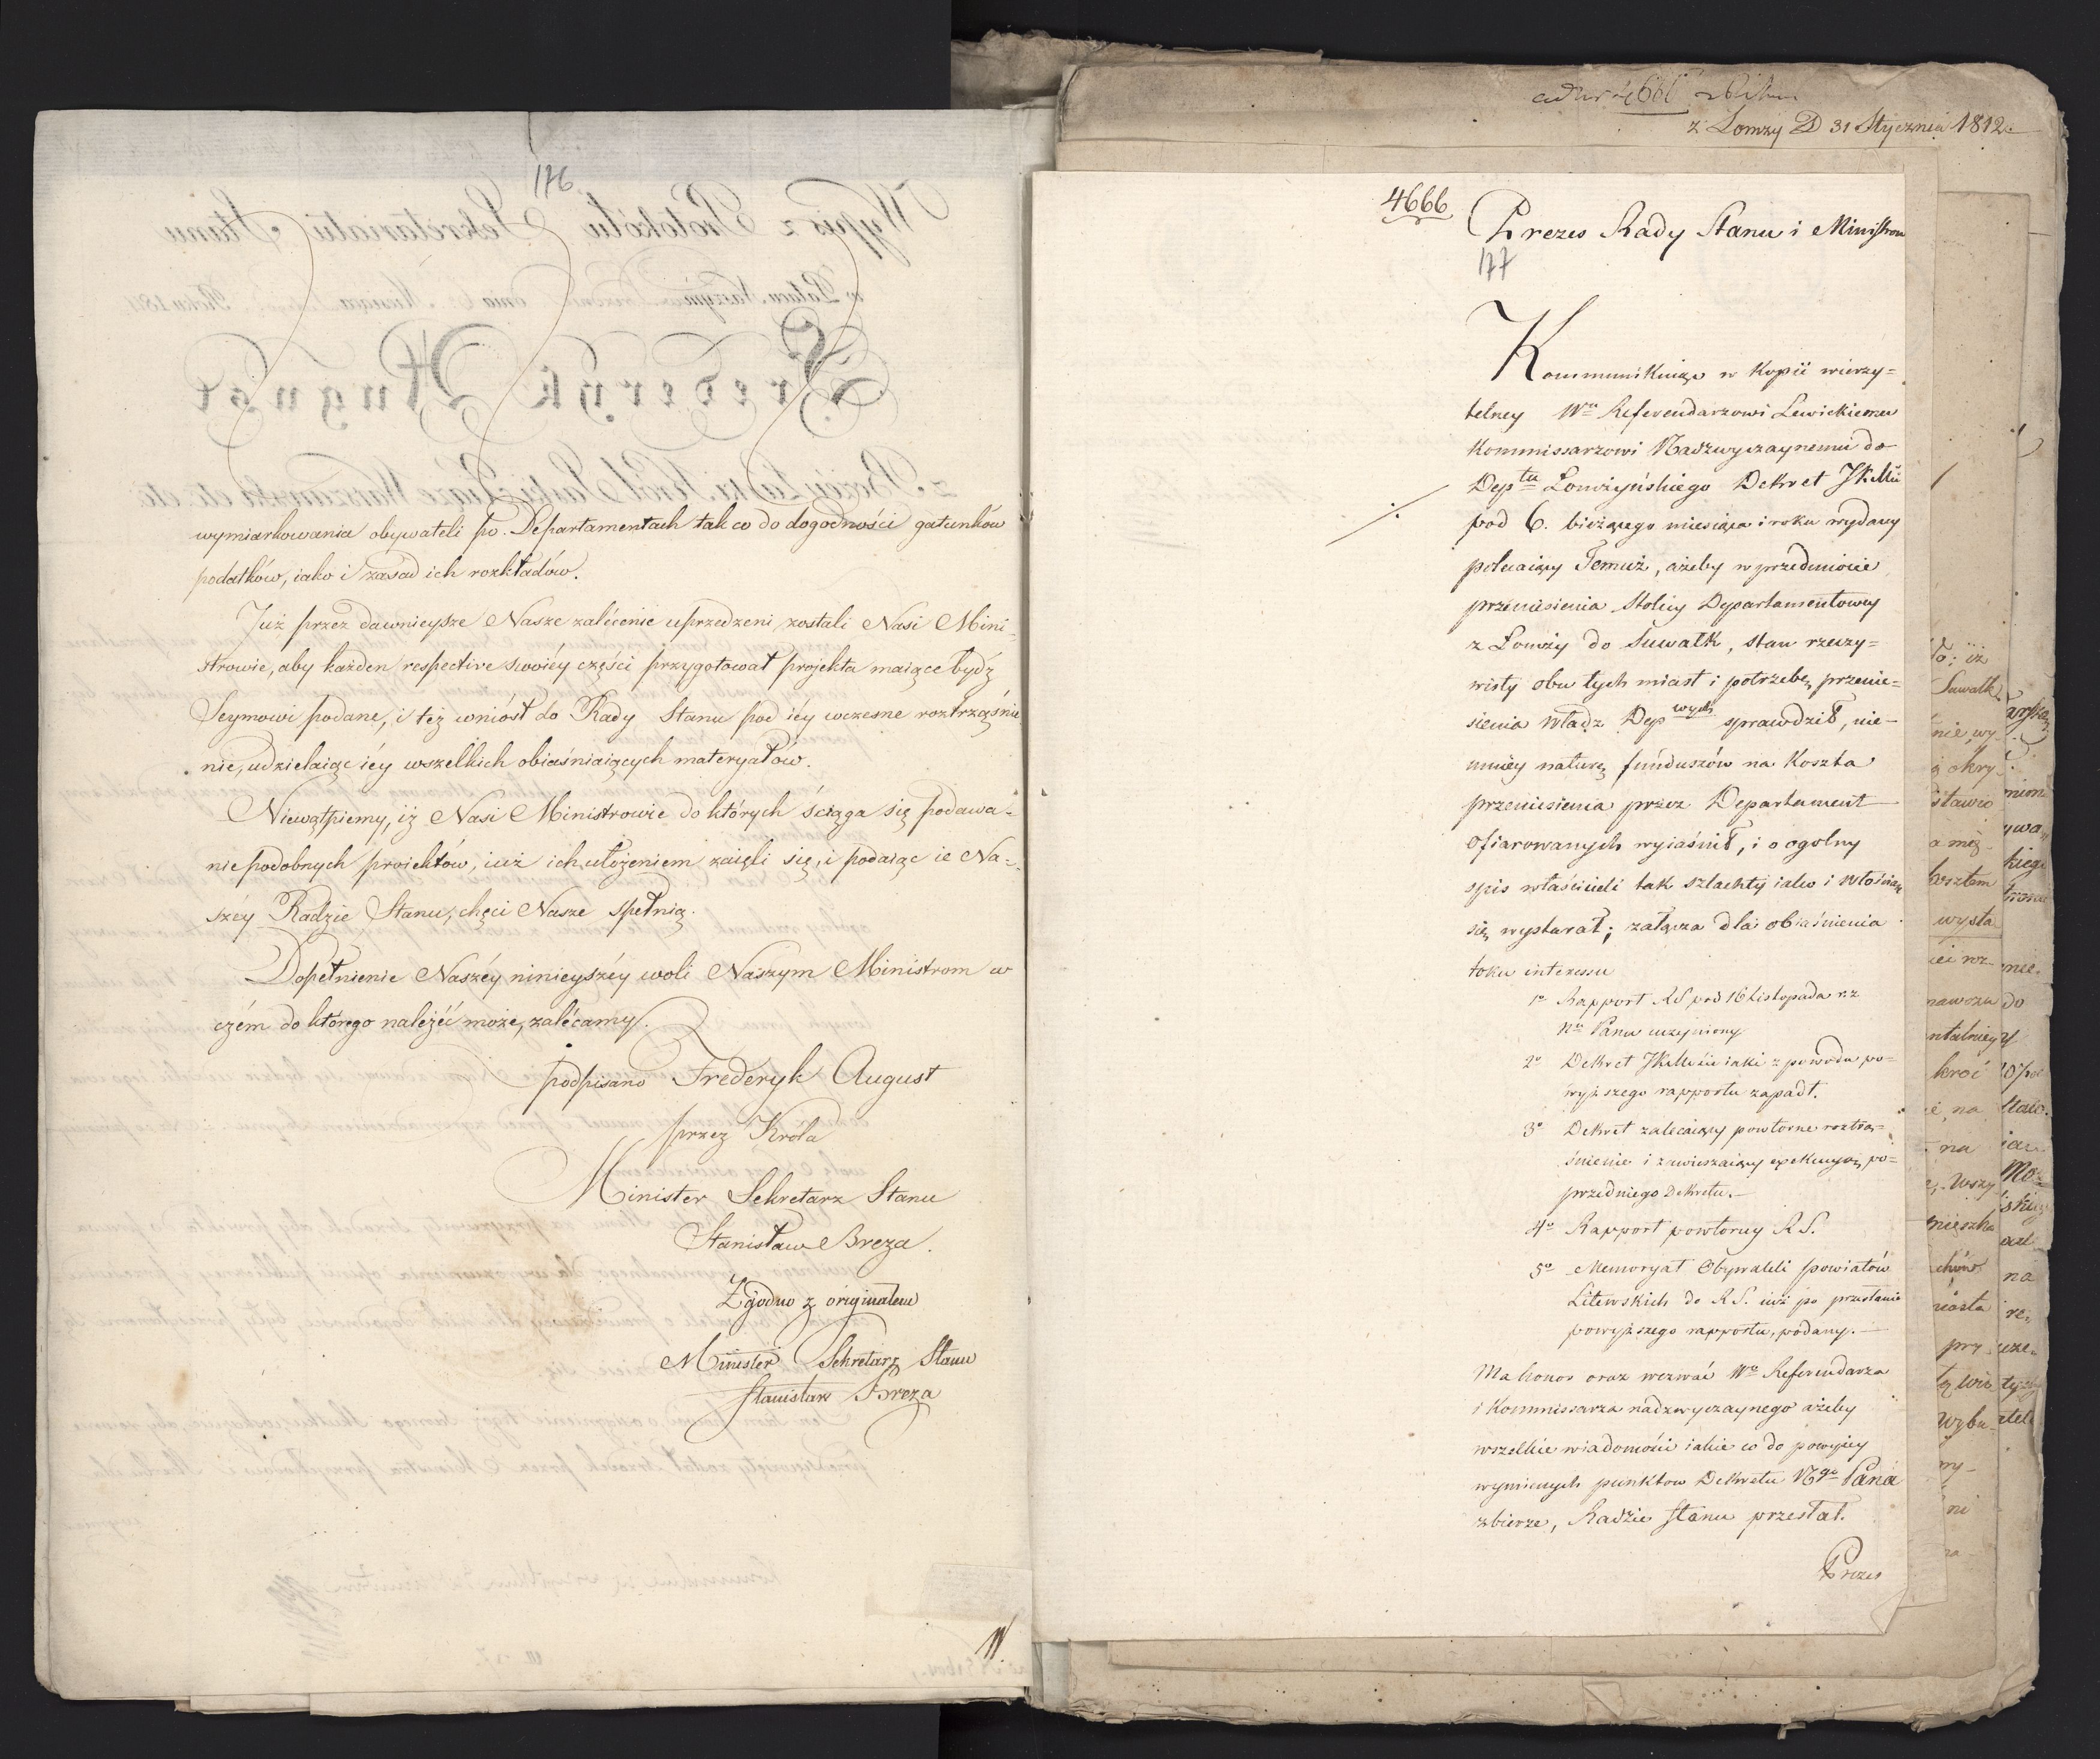 176
wymiarkowania obywateli po Departamentach tak co do dogodności gatunków
podatków, iako i zasad ich rozkładów.
Już przez dawnieysze Nasze zalécenie uprzedzeni zostali Nasi Mini-
strowie, aby każden respective swoiéy części przygotował projekta maiące bydź
Seymowi podane, i też wniósł do Rady Stanu pod iéy wczesne roztrząśnie
nie, udzielaiąc iéy wszelkich obiaśniaiących materyałów.
Niewątpiemy, iż Nasi Ministrowie do których ściąga się podawa-
nie podobnych proiektów, iuż ich ułożeniem zaięli się, i podaiąc ie Na-
széy Radzie Stanu, chęci Nasze spełnią.
Dopełnienie Naszéy ninieyszéy woli Naszym Ministrom w
czém do którego należéć może, zalécamy.
podpisano Frederyk August
przez Króla
Minister Sekretarz Stanu
Stanisław Breza.
Zgodno z originałem
Minister Sekretarz Stanu
Stanisław Breza
z Łomży D 31 Stycznia 1812.
4666
Prezes Rady Stanu i Ministrow
177
Kommunikuiąc w kopii wierzy=
telney Wu Referendarzowi Lewickiemu
Kommissarzowi Nadzwyczaynemu do
Deptu Łomżyńskiego Dekret JKMci
pod 6. bieżącego miesiąca i roku wydany
polecaiący Temuż, ażeby w przedmiocie
przeniesienia Stolicy Departamentowey
z Łomży do Suwałk, stan rzeczy=
wisty obu tych miast i potrzebę przenie=
sienia władz Depwych sprawdził, nie-
mniey naturę funduszów na koszta
przeniesienia przez Departament
ofiarowanych wyiaśnił, i o ogolny
spis właścicieli tak szlachty iako i włościan
się wystarał; załącza dla obiaśnienia
toku interessu
1o Rapport RS pod 16 Listopada r. z
Nu Panu uczyniony
2o Dekret JKMci iaki z powodu po=
wyższego rapportu zapadł.
3o Dekret zalecaiący powtorne roztrzą=
śnienie i zawieszaiący exekucyą po=
przedniego Dekretu.—
4o Rapport powtorny RS.
5o Memoryał Obywateli powiatów
Litewskich do RS. iuż po przesłaniu
powyższego rapportu, podany.—
Ma honor oraz wezwać Wo Referendarza
i Kommissarza nadzwyczaynego ażeby
wszelkie wiadomości iakie co do powyżey
wymienych punktow Dekretu Ngo Pana
zbierze, Radzie Stanu przesłał.
Prezes